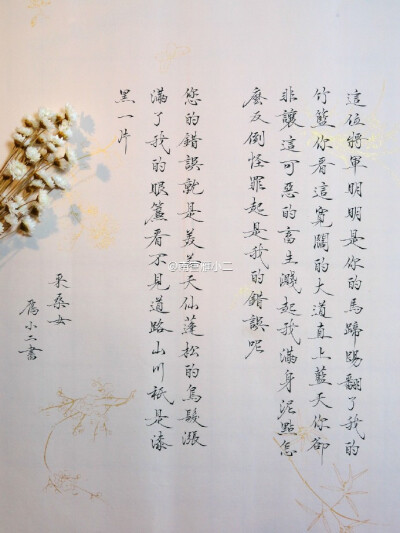 這位將軍明明是你的馬蹄踢翻了我的
竹籃你看這寬闊的大道直上藍天你卻
非讓這可惡的畜生濺起我滿身泥點怎
麼反倒怪罪起是我的錯誤呢
您的錯誤就是美美天仙蓬松的烏髮漲
滿了我的眼簾看不見道路山川祇是漆
黑一片
采桑女
小二書